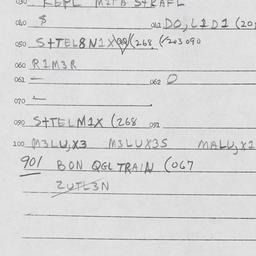 030 KEPL M2TB S+RAFL
040 8 041 DO, L1D1 (20
050 S+TEL8N1X (268 (203 090
060 R1M3R
061 — 062 O
070 —
090 S+TELM1X (268 091
100 M3LU,X3 M3LUX3S MALU,X1
901 BON QGL TRAIN (067
2UTL3N